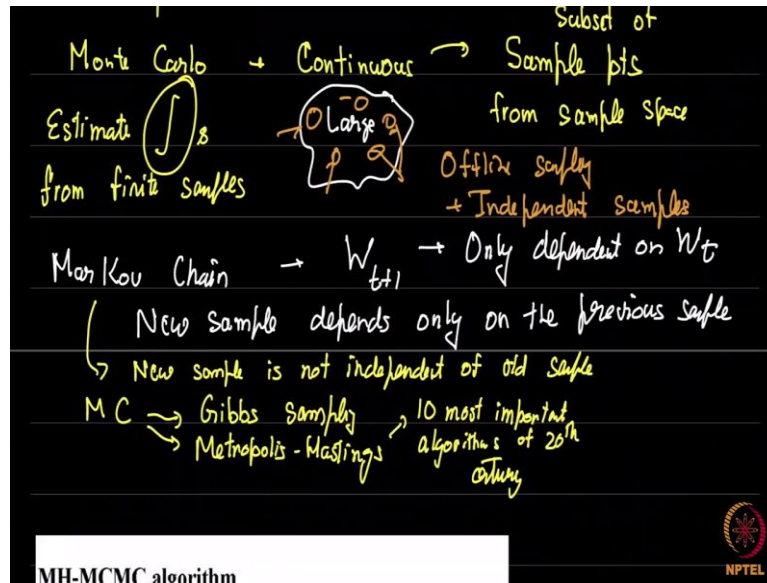 Subset of
Monte Carlo → Continuous → Sample pts
from sample space
Estimate ∫s
from finite samples
Large
Offline sampling
+ Independent samples
Markov Chain → W_{t+1} → Only dependent on W_t
New sample depends only on the previous sample
↳ New sample is not independent of old sample
MC → Gibbs Sampling
→ Metropolis-Hastings → 10 most important
algorithms of 20th
century
NPTEL
MH-MCMC algorithm